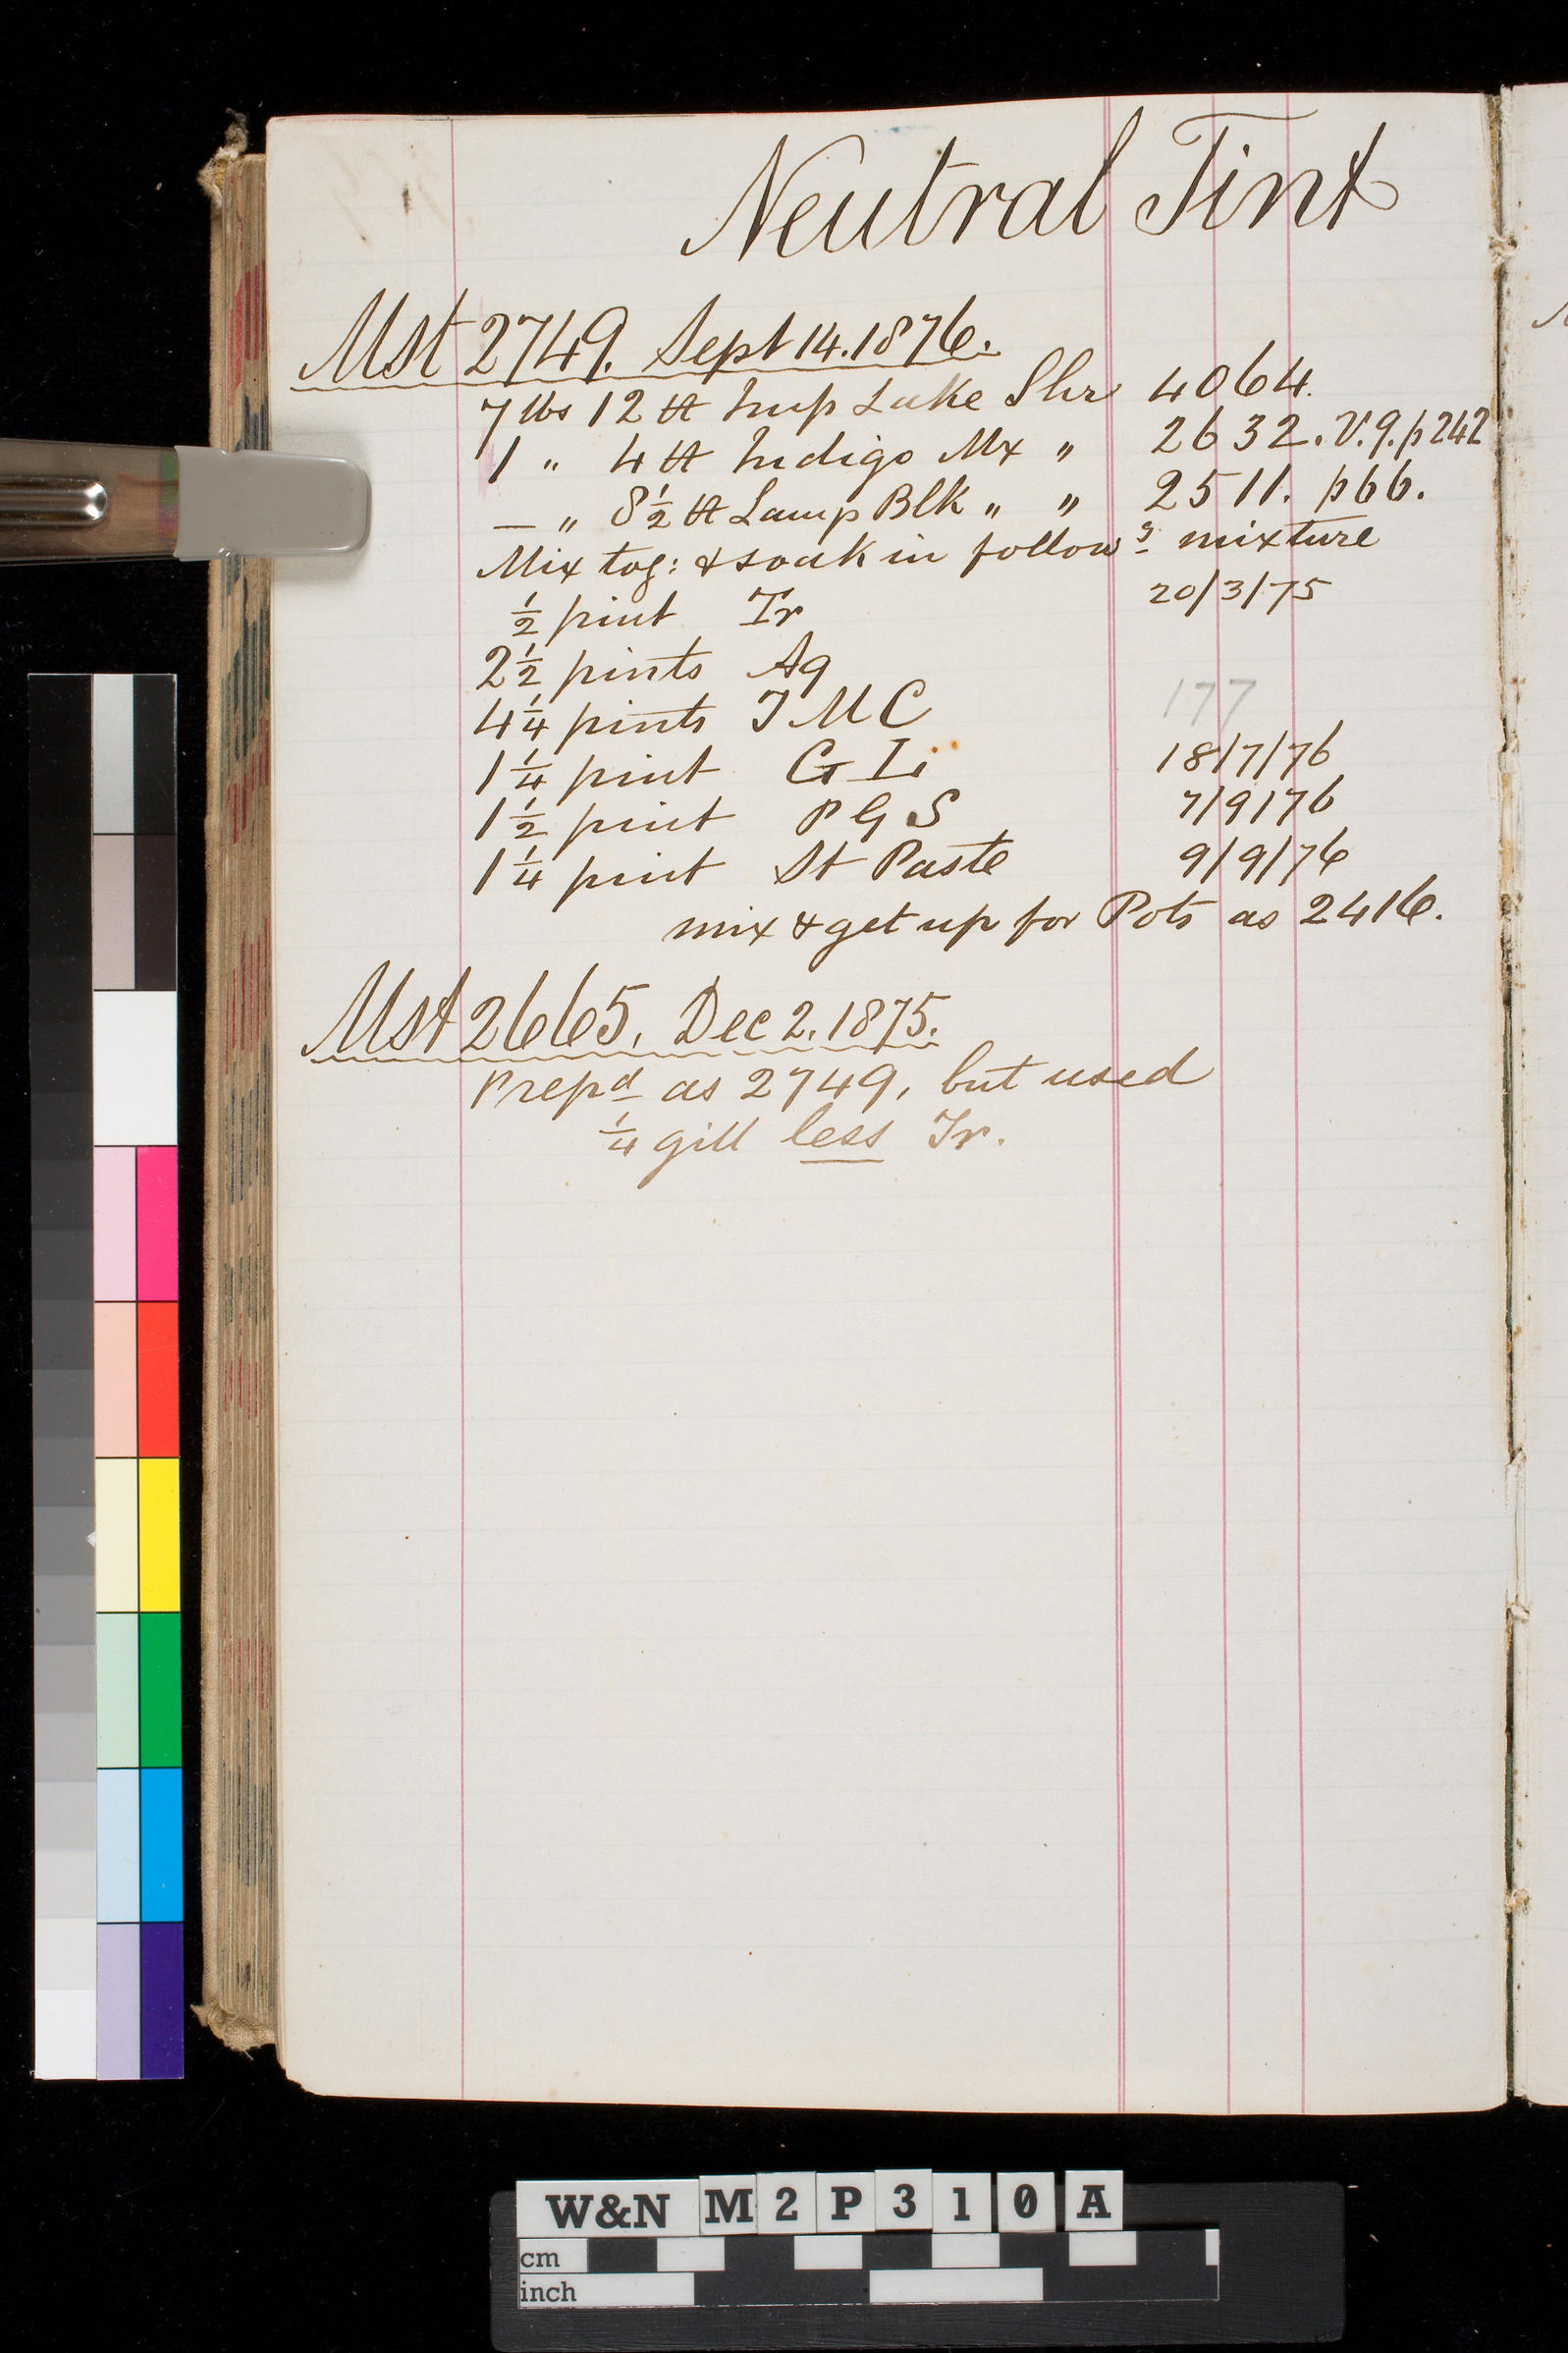 Neutral Tint
Mst 2749. Sept 14. 1876.
7 lbs 12 ℔ Imp Lake Shr 4064.
1 " 4 ℔ Indigo Mx " 2632. V.9. p242
— " 8½ ℔ Lamp Blk " " 2511. p66.
Mix tog: & soak in follow^g mixture
½ pint Tr 20/3/75
2½ pints Aq
4¼ pints TMC 177
1¼ pint G Li 18/7/76
1½ pint P G S 7/9/76
1¼ pint St Paste 9/9/76
mix & get up for Pots as 2416.
Mst 2665. Dec 2. 1875.
Prep^d as 2749, but used
¼ gill less Tr.
W&N M2P310A
cm
inch